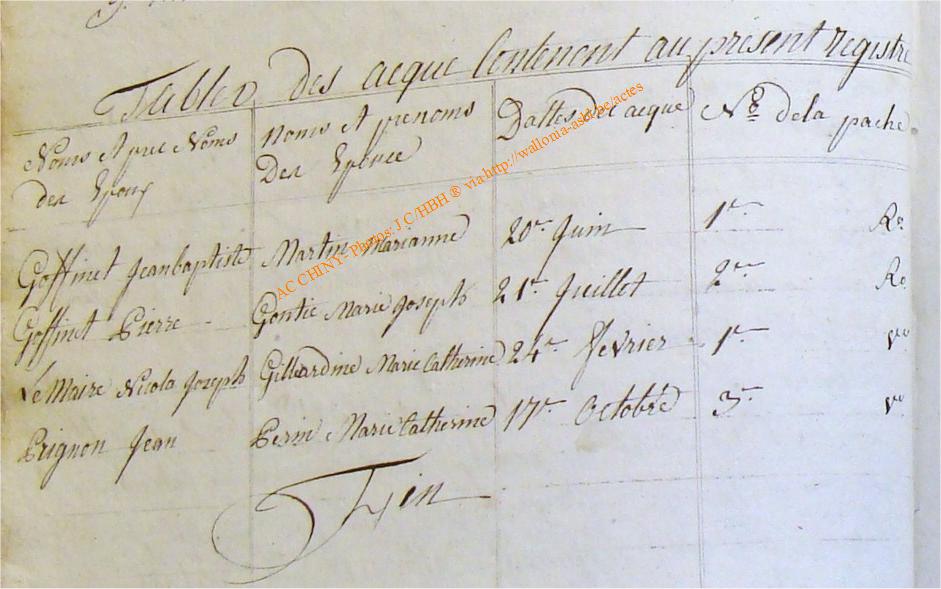 Tables des acque Contenent au présent registre
Noms et pre Noms des Epoux
Noms et prenoms Des Epouce
Dattes des acque
No. dela pache
Goffinet Jeanbaptiste Martin Marianne 20e. Juin 1e. Ro.
Goffinet Pierre Gontie Marie Joseph 21e. Juillet 2e. Ro.
LeMaire Nicola Joseph Gillardine Marie Catherine 24e. fevrier 1e. vo.
Prignon Jean Perin Marie Catherine 17e. Octobre 3e. vo.
Fin
AC CHINY - Photos: J C/HBH ® via http://wallonia-asbl.be/actes